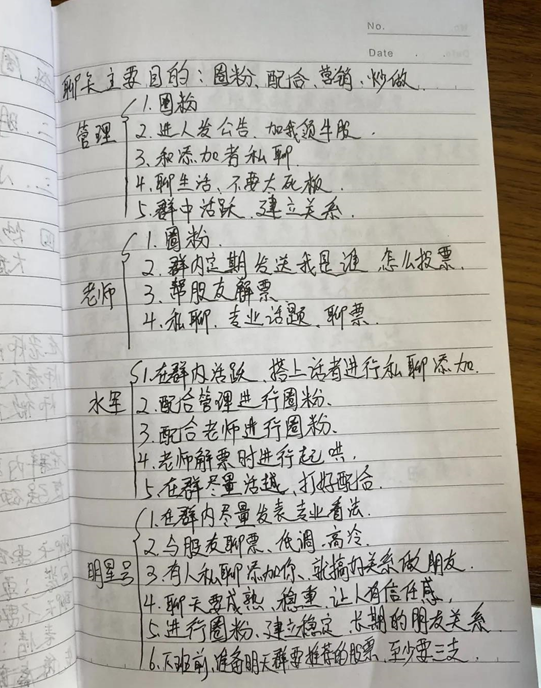 No.
Date
聊天主要目的：圈粉、配合、营销、炒做
管理
1.圈粉
2.进人发公告、加我领牛股.
3.和添加者私聊.
4.聊生活、不要太死板.
5.群中活跃、建立关系.
老师
1.圈粉.
2.群内定期发送我是谁 怎么投票.
3.帮股友解票
4.私聊、专业话题、聊票.
水军
1.在群内活跃、搭上话者进行私聊添加.
2.配合管理进行圈粉.
3.配合老师进行圈粉.
4.老师解票时进行起哄.
5.在群尽量活越、打好配合.
明星号
1.在群内尽量发表专业看法.
2.与股友聊票、低调、高冷.
3.有人私聊添加你、就搞好关系做朋友.
4.聊天要成熟、稳重、让人有信任感.
5.进行圈粉、建立稳定、长期的朋友关系.
6.下班前、准备明天群要推荐的股票、至少要三支.